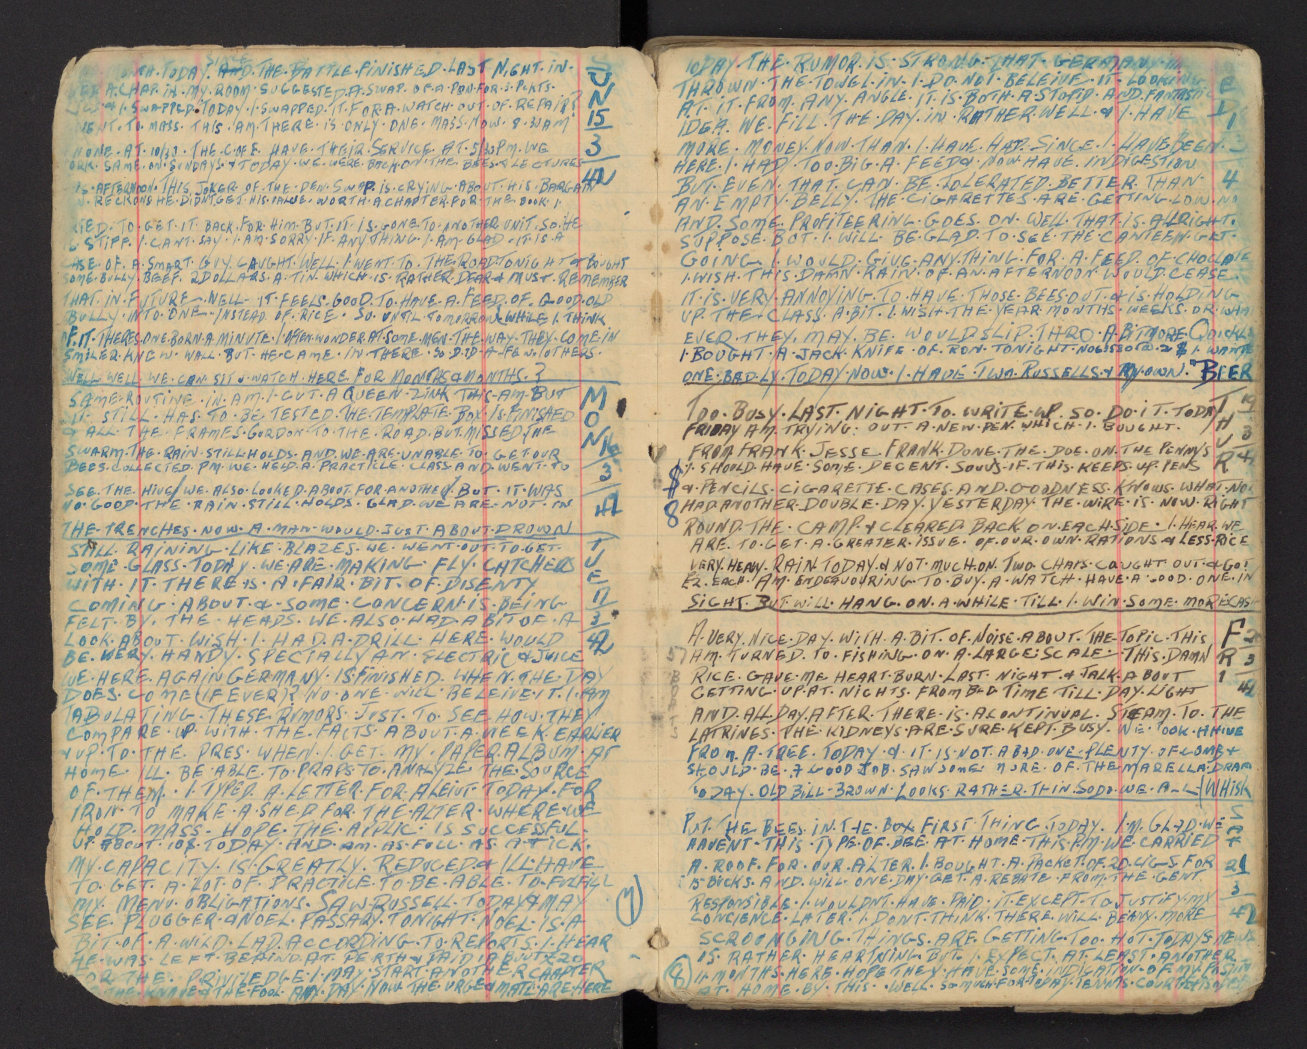 MONTH. TODAY. AND. THE. BATTLE. FINISHED. LAST. NIGHT. IN.
A. CHAP. IN. MY. ROOM. SUGGESTED. A. SWAP. OF. A. PEN. FOR. 3. PKTS.
& I. SWAPPED. TODAY. I. SWAPPED. IT. FOR. A. WATCH. OUT. OF. REPAIR?
WENT. TO. MASS. THIS. AM. THERE. IS. ONLY. ONE. MASS. NOW. 8.30AM
NONE. AT. 10/30. THE. C.OF.E. HAVE. THEIR. SERVICE. AT. 5/30PM. WE
WORK. SAME. ON. SUNDAYS. & TODAY. WE. WERE. BACK. ON. THE. BEES. & LECTURES
THIS. AFTERNOON. THIS. JOKER. OF. THE. PEN. SWAP. IS. CRYING. ABOUT. HIS. BARGAIN
RECKONS. HE. DIDNT. GET. HIS. VALUE. WORTH. A. CHAPTER. FOR. THE. BOOK. I
TRIED. TO. GET. IT. BACK. FOR. HIM. BUT. IT. IS. GONE. TO. ANOTHER. UNIT. SO. HE
IS. STIFF. I. CANT. SAY. I. AM. SORRY. IF. ANYTHING. I. AM. GLAD. IT. IS. A
CASE. OF. A. SMART. GUY. CAUGHT. WELL. I. WENT. TO. THE. ROAD. TONIGHT. & BOUGHT
SOME. BULLY. BEEF. 2 DOLLARS. A. TIN. WHICH. IS. RATHER. DEAR & MUST. REMEMBER
THAT. IN. FUTURE. WELL. IT. FEELS. GOOD. TO. HAVE. A. FEED. OF. GOOD. OLD
BULLY. INTO. ONE. INSTEAD. OF. RICE. SO. UNTIL. TOMORROW (WHILE. I. THINK
OF. IT. THERES. ONE. BORN. A. MINUTE. I. OFTEN. WONDER. AT. SOME. MEN. THE. WAY. THEY. COME. IN
SMILER. KNEW. WELL. BUT. HE. CAME. IN. THERE. SO. DID. A. FEW. OTHERS.
WELL. WELL. WE. CAN. SIT. & WATCH. HERE. FOR. MONTHS & MONTHS. ?
SUN
15
3
42
SAME. ROUTINE. IN. AM. I. CUT. A. QUEEN. ZINK. THIS. AM. BUT
IT. STILL. HAS. TO. BE. TESTED. THE. TEMPLATE. BOX. IS. FINISHED
& ALL. THE. FRAMES. GORDON. TO. THE. ROAD. BUT. MISSED. THE
SWARM. THE. RAIN. STILL. HOLDS. AND. WE. ARE. UNABLE. TO. GET. OUR
BEES. COLLECTED. PM. WE. HELD. A. PRACTICLE. CLASS. AND. WENT. TO
SEE. THE. HIVE. WE. ALSO. LOOKED. ABOUT. FOR. ANOTHER. BUT. IT. WAS
NO. GOOD. THE. RAIN. STILL. HOLDS. GLAD. WE. ARE. NOT. IN
THE. TRENCHES. NOW. A. MAN. WOULD. JUST. ABOUT. DROWN
MON 16
3
42
STILL. RAINING. LIKE. BLAZES. WE. WENT. OUT. TO. GET
SOME. GLASS. TODAY. WE. ARE. MAKING. FLY. CATCHERS
WITH. IT. THERE. IS. A. FAIR. BIT. OF. DISENTY
COMING. ABOUT. & SOME. CONCERN. IS. BEING
FELT. BY. THE. HEADS. WE. ALSO. HAD. A. BIT. OF. A
LOOK. ABOUT. WISH. I. HAD. A. DRILL. HERE. WOULD
BE. VERY. HANDY. SPECIALLY. AN. ELECTRIC. & JUICE
WE. HERE. AGAIN. GERMANY. IS. FINISHED. WHEN. THE. DAY
DOES. COME (IF EVER)? NO. ONE. WILL. BELEIVE. IT. I. AM
TABULATING. THESE. RUMORS. JUST. TO. SEE. HOW. THEY
COMPARE. UP. WITH. THE. FACTS. ABOUT. A. WEEK. EARLIER
& UP. TO. THE. PRES. WHEN. I. GET. MY. PAPER. ALBUM. AT
HOME. ILL. BE. ABLE. TO. PRAPS. TO. ANALYZE. THE. SOURCE
OF. THEM. I. TYPED. A. LETTER. FOR. A. LEIUT. TODAY. FOR
IRON. TO. MAKE. A. SHED. FOR. THE. ALTER. WHERE. WE
HOLD. MASS. HOPE. THE. APPLIC. IS. SUCCESSFUL.
UP. ABOUT. TODAY. AND. AM. AS. FULL. AS. A. TICK.
MY. CAPACITY. IS. GREATLY. REDUCED. & ILL. HAVE
TO. GET. A. LOT. OF. PRACTICE. TO. BE. ABLE. TO. FULFILL
MY. MENU. OBLIGATIONS. SAW. RUSSELL. TODAY. MAY
SEE. PLUGGER. & NOEL. PASSARY. TONIGHT. NOEL. IS. A
BIT. OF. A. WILD. LAD. ACCORDING. TO. REPORTS. I. HEAR
HE. WAS. LEFT. BEHIND. AT. PERTH. & PAID. ABOUT £20
FOR. THE. PRIVILEDGE. I. MAY. START. ANOTHER. CHAPTER
THE. KNAVE & THE. FOOL. ANY. DAY. NOW. THE. URGE & MATL. ARE. HERE
TUE
17
3
42
(7)
TODAY. THE. RUMOR. IS. STRONG. THAT. GERMANY
THROWN. THE. TOWEL. IN. I. DO. NOT. BELEIVE. IT. LOOKING
AT. IT. FROM. ANY. ANGLE. IT. IS. BOTH. A. STUPID. AND. FANTASTIC
IDEA. WE. FILL. THE. DAY. IN. RATHER. WELL. & I. HAVE
MORE. MONEY. NOW. THAN. I. HAVE. HAD. SINCE. I. HAVE. BEEN.
HERE. I. HAD. TOO. BIG. A. FEED & NOW. HAVE. INDIGESTION
BUT. EVEN. THAT. CAN. BE. TOLERATED. BETTER. THAN
AN. EMPTY. BELLY. THE. CIGARETTES. ARE. GETTING. LOW. NO
AND. SOME. PROFITEERING. GOES. ON. WELL. THAT. IS. ALRIGHT. I
SUPPOSE. BUT. I. WILL. BE. GLAD. TO. SEE. THE. CANTEEN. GET
GOING. I. WOULD. GIVE. ANYTHING. FOR. A. FEED. OF. CHOCLATE
I. WISH. THIS. DAMN. RAIN. OF. AN. AFTERNOON. WOULD. CEASE
IT. IS. VERY. ANNOYING. TO. HAVE. THOSE. BEES. OUT. & IS. HOLDING
UP. THE. CLASS. A. BIT. I. WISH. THE. YEAR. MONTHS. WEEKS. OR. WHAT
EVER. THEY. MAY. BE. WOULD. SLIP. THRO. A. BIT. MORE. QUICKLY
I. BOUGHT. A. JACK. KNIFE. OF. RON. TONIGHT. 2 $ I. WANTED
ONE. BADLY. TODAY. NOW. I. HAVE. TWO. RUSSELLS. & MY. OWN. BEER
TOO. BUSY. LAST. NIGHT. TO. WRITE. UP. SO. DO. IT. TODAY
FRIDAY AM. TRYING. OUT. A. NEW. PEN. WHICH. I. BOUGHT.
FROM. FRANK. JESSE. FRANK. DONE. THE. DOE. ON. THE. PENNYS
I. SHOULD. HAVE. SOME. DECENT. SOUVS. IF. THIS. KEEPS. UP. PENS
& PENCILS. CIGARETTE. CASES. AND. GOODNESS. KNOWS. WHAT. NOT
HAD. ANOTHER. DOUBLE. DAY. YESTERDAY. THE. WIRE. IS. NOW. RIGHT
ROUND. THE. CAMP. & CLEARED. BACK. ON. EACH. SIDE. I. HEAR. WE
ARE. TO. GET. A. GREATER. ISSUE. OF. OUR. OWN. RATIONS. & LESS. RICE
VERY. HEAVY. RAIN. TODAY. & NOT. MUCH. ON. TWO. CHAPS. CAUGHT. OUT. & GOT
£2. EACH. AM. ENDEAVOURING. TO. BUY. A. WATCH. HAVE. A. GOOD. ONE. IN
SIGHT. BUT. WILL. HANG. ON. A. WHILE. TILL. I. WIN. SOME. MORE. CASH
THUR
19
3
42
$
8
A. VERY. NICE. DAY. WITH. A. BIT. OF. NOISE. ABOUT. THE. TOPIC. THIS
AM. TURNED. TO. FISHING. ON. A. LARGE. SCALE. THIS. DAMN
RICE. GAVE. ME. HEART. BURN. LAST. NIGHT. & TALK. ABOUT
GETTING. UP. AT. NIGHTS. FROM. BED. TIME. TILL. DAY. LIGHT
AND. ALL. DAY. AFTER. THERE. IS. A. CONTINUAL. STEAM. TO. THE
LATRINES. THE. KIDNEYS. ARE. SURE. KEPT. BUSY. WE. TOOK. A. HIVE
FROM. A. TREE. TODAY. & IT. IS. NOT. A. BAD. ONE. PLENTY. OF. COMB. &
SHOULD. BE. A. GOOD. JOB. SAW. SOME. MORE. OF. THE. MARELLA. DRAFT
TODAY. OLD. BILL. BROWN. LOOKS. RATHER. THIN. SO. DO. WE. ALL (WHISK
FRI
20
3
42
PUT. THE. BEES. IN. THE. BOX. FIRST. THING. TODAY. I'M. GLAD. WE
HAVENT. THIS. TYPE. OF. BEE. AT. HOME. THIS. PM. WE. CARRIED
A. ROOF. FOR. OUR. ALTER. I. BOUGHT. A. PACKET. OF. 20. CIGS. FOR
15 BUCKS. AND. WILL. ONE. DAY. GET. A. REBATE. FROM. THE. GENT.
RESPONSIBLE. I. WOULDNT. HAVE. PAID. IT. EXCEPT. TO. JUSTIFY. MY
CONCIENCE. LATER. I. DONT. THINK. THERE. WILL. BE. ANY. MORE
SCROONGING. THINGS. ARE. GETTING. TOO. HOT. TODAYS. NEWS
IS. RATHER. HEARTNING. BUT. I. EXPECT. AT. LEAST. ANOTHER
MONTHS. HERE. HOPE. THEY. HAVE. SOME. INDICATION. OF. MY. POSITN
AT. HOME. BY. THIS. WELL. SO. MUCH. FOR. TODAY. TENNIS. COURT
SAT
21
3
42
(8)